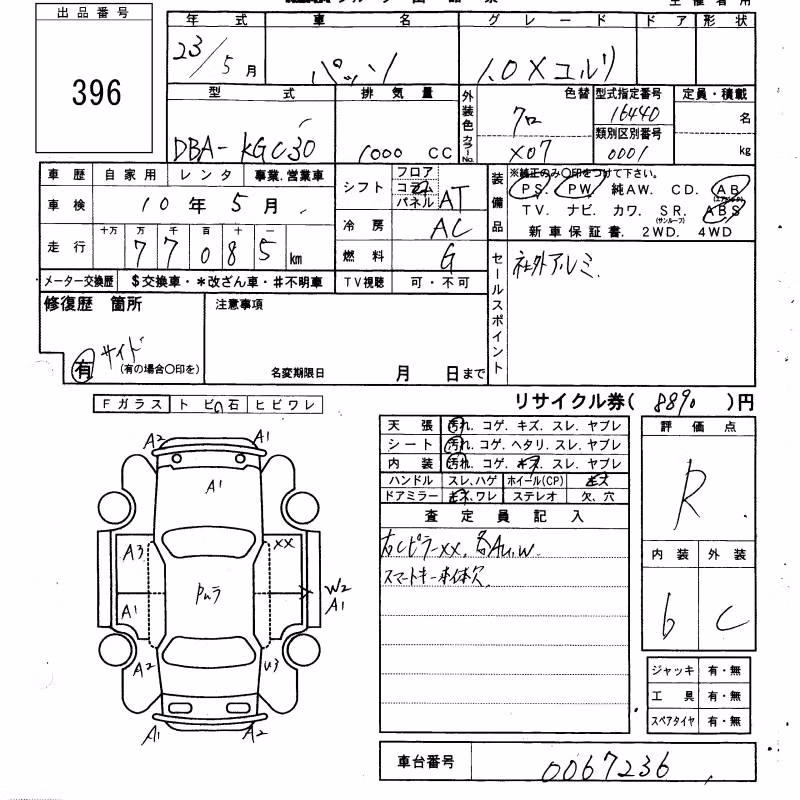 出品番号
396
年式 車名 グレード ドア 形状
23/5月 パッソ 1.0Xユルリ
型式 排気量 外装色 カラーNo. 色替 型式指定番号 定員・積載
DBA-KGC30 1000 CC クロ X07 16440 類別区別番号 0001 名 kg
車歴 自家用 レンタ 事業.営業車
車検 10年5月
走行 十万 万 千 百 十 一
77085km
メーター交換歴 $交換車・*改ざん車・#不明車
シフト フロア コラム パネル AT
冷房 AC
燃料 G
TV視聴 可・不可
装備品 ※純正のみ〇印をつけて下さい。
PS. PW. 純AW. CD. AB(エアバック)
TV. ナビ. カワ. SR.(サンルーフ) ABS
新車保証書. 2WD. 4WD
セールスポイント 社外アルミ.
修復歴 箇所
サイド
有 (有の場合〇印を)
注意事項
名変期限日 月 日まで
リサイクル券( 8890 )円
Fガラス トビ石 ヒビワレ
天張 汚れ. コゲ. キズ. スレ. ヤブレ
シート 汚れ. コゲ. ヘタリ. スレ. ヤブレ
内装 汚れ. コゲ. キズ. スレ. ヤブレ
ハンドル スレ.ハゲ ホイール(CP) キズ
ドアミラー キズ.ワレ ステレオ 欠.穴
査定員記入
右Cピラーxx. 各Au.w.
スマートキー本体欠
評価点
R
内装 外装
6 C
ジャッキ 有・無
工具 有・無
スペアタイヤ 有・無
A2 A1
A1
A3 XX
W2
A1 A1
A2 U3
A1 A2
車台番号 0067236